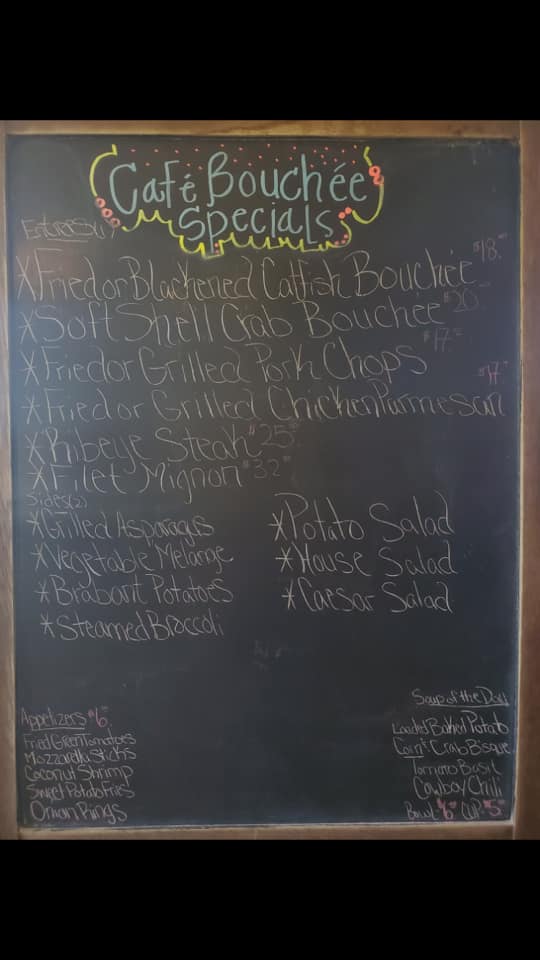 Café Bouchée
Specials
$18.00
*Fried or Blackened Catfish Bouchée
*Soft Shell Crab Bouchée $20
*Fried or Grilled Pork Chops $17.00
*Fried or Grilled Chicken Parmesan $17.00
*Ribeye Steak $25.00
*Filet Mignon $32.00
Sides(2)
*Grilled Asparagus
*Vegetable Melange
*Brabant Potatoes
*Steamed Broccoli
*Potato Salad
*House Salad
*Caesar Salad
Appetizers $6.00
Fried Green Tomatoes
Mozzarella Sticks
Coconut Shrimp
Sweet Potato Fries
Onion Rings
Soup of the Day
Loaded Baked Potato
Corn & Crab Bisque
Tomato Basil
Cowboy Chili
Bowl $6.00 Cup $5.00